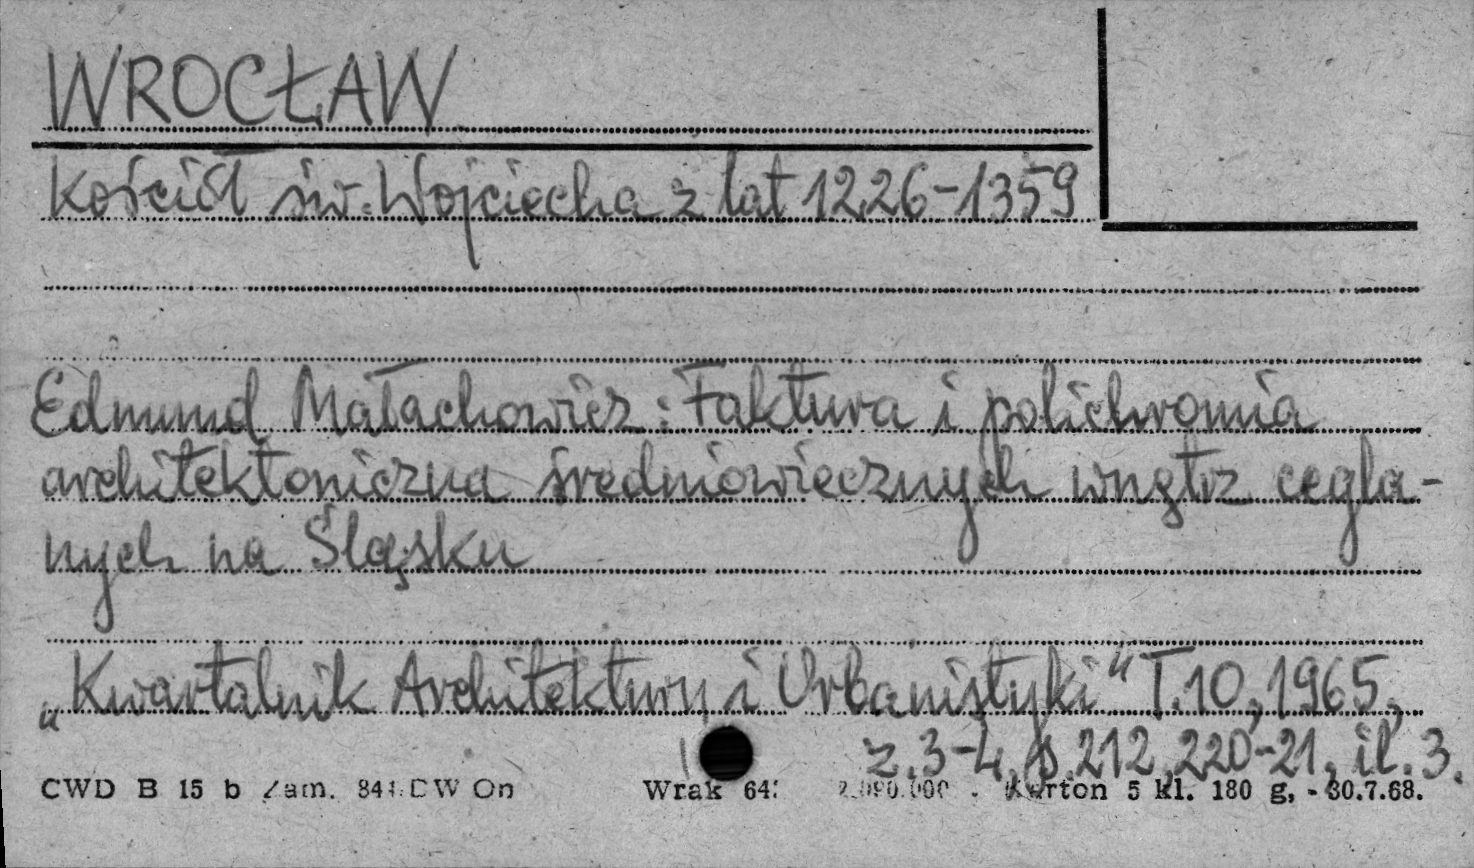 WROCŁAW
Kościół św. Wojciecha z lat 1226-1359
Edmund Małachowicz: Faktura i polichromia
architektoniczna średniowiecznych wnętrz cegla-
nych na Śląsku
„Kwartalnik Architektury i Urbanistyki" T.10, 1965,
z. 3-4, s. 212, 220-21, il. 3.
CWD B 15 b Zam. CW On Wrak Karton 5 kl. 180 g, - 30.7.68.